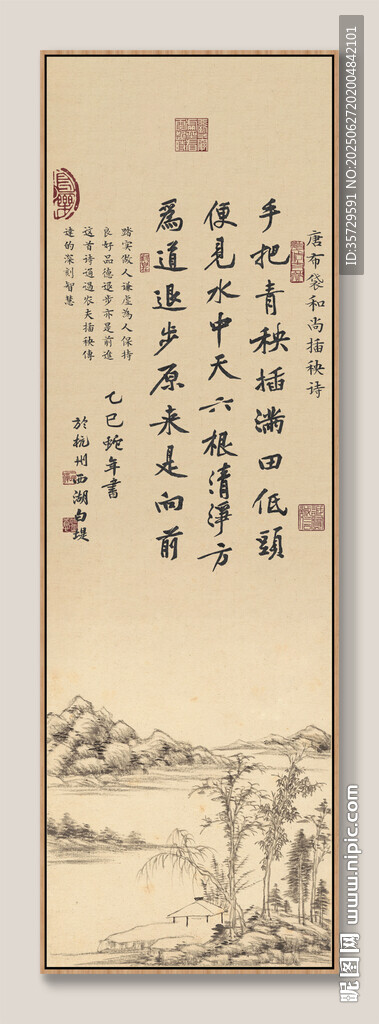 唐布袋和尚插秧诗
手把青秧插滿田低頭
便見水中天六根清淨方
爲道退步原来是向前
踏实做人谦虚为人保持
良好品德退步亦是前進
这首诗通過农夫插秧傳
達的深刻智慧
乙巳蛇年書
於杭州西湖白堤
ID:35729591 NO:20250627202004842101
昵图网 www.nipic.com